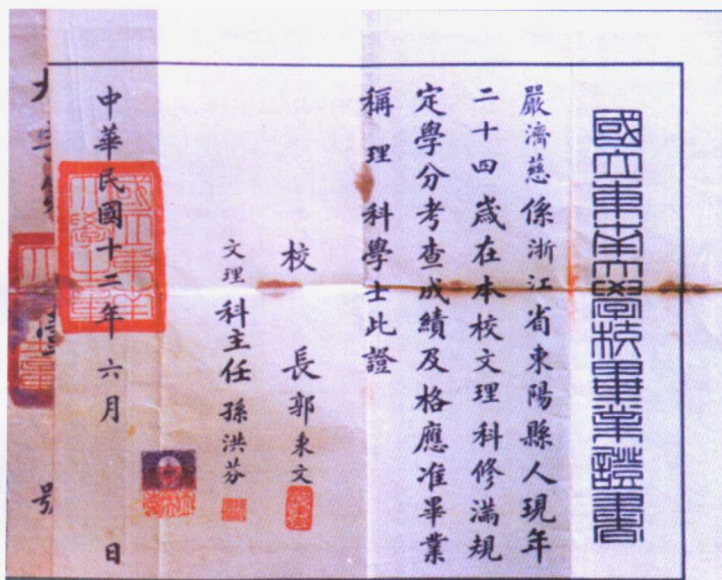 國立東南大學校畢業證書
嚴濟慈係浙江省東陽縣人現年
二十四歲在本校文理科修滿規
定學分考查成績及格應准畢業
稱理科學士此證
校長郭東文
文理科主任孫洪芬
中華民國十二年六月 日
號